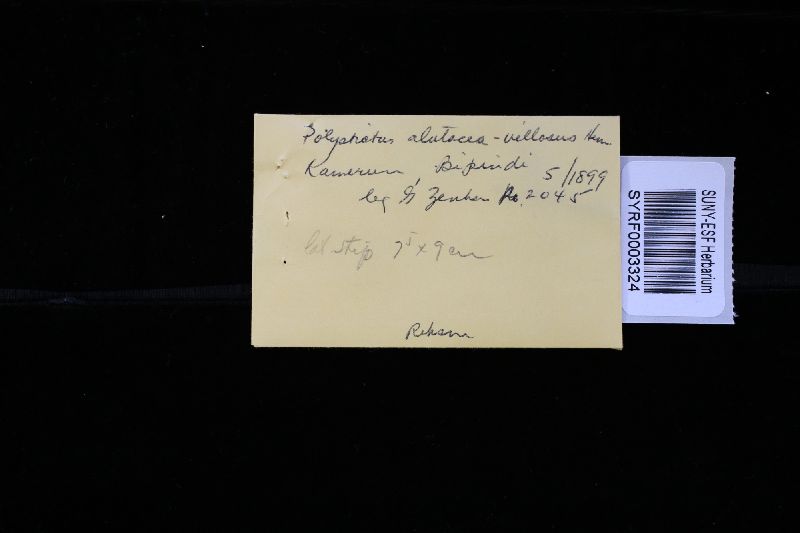 Polystictus alutacea-villosus Henn.
Kamerun, Bipindi 5/1899
leg G Zenker No. 2045
stip 7⁵ x 9 cm
SUNY-ESF Herbarium
SYRF0003324